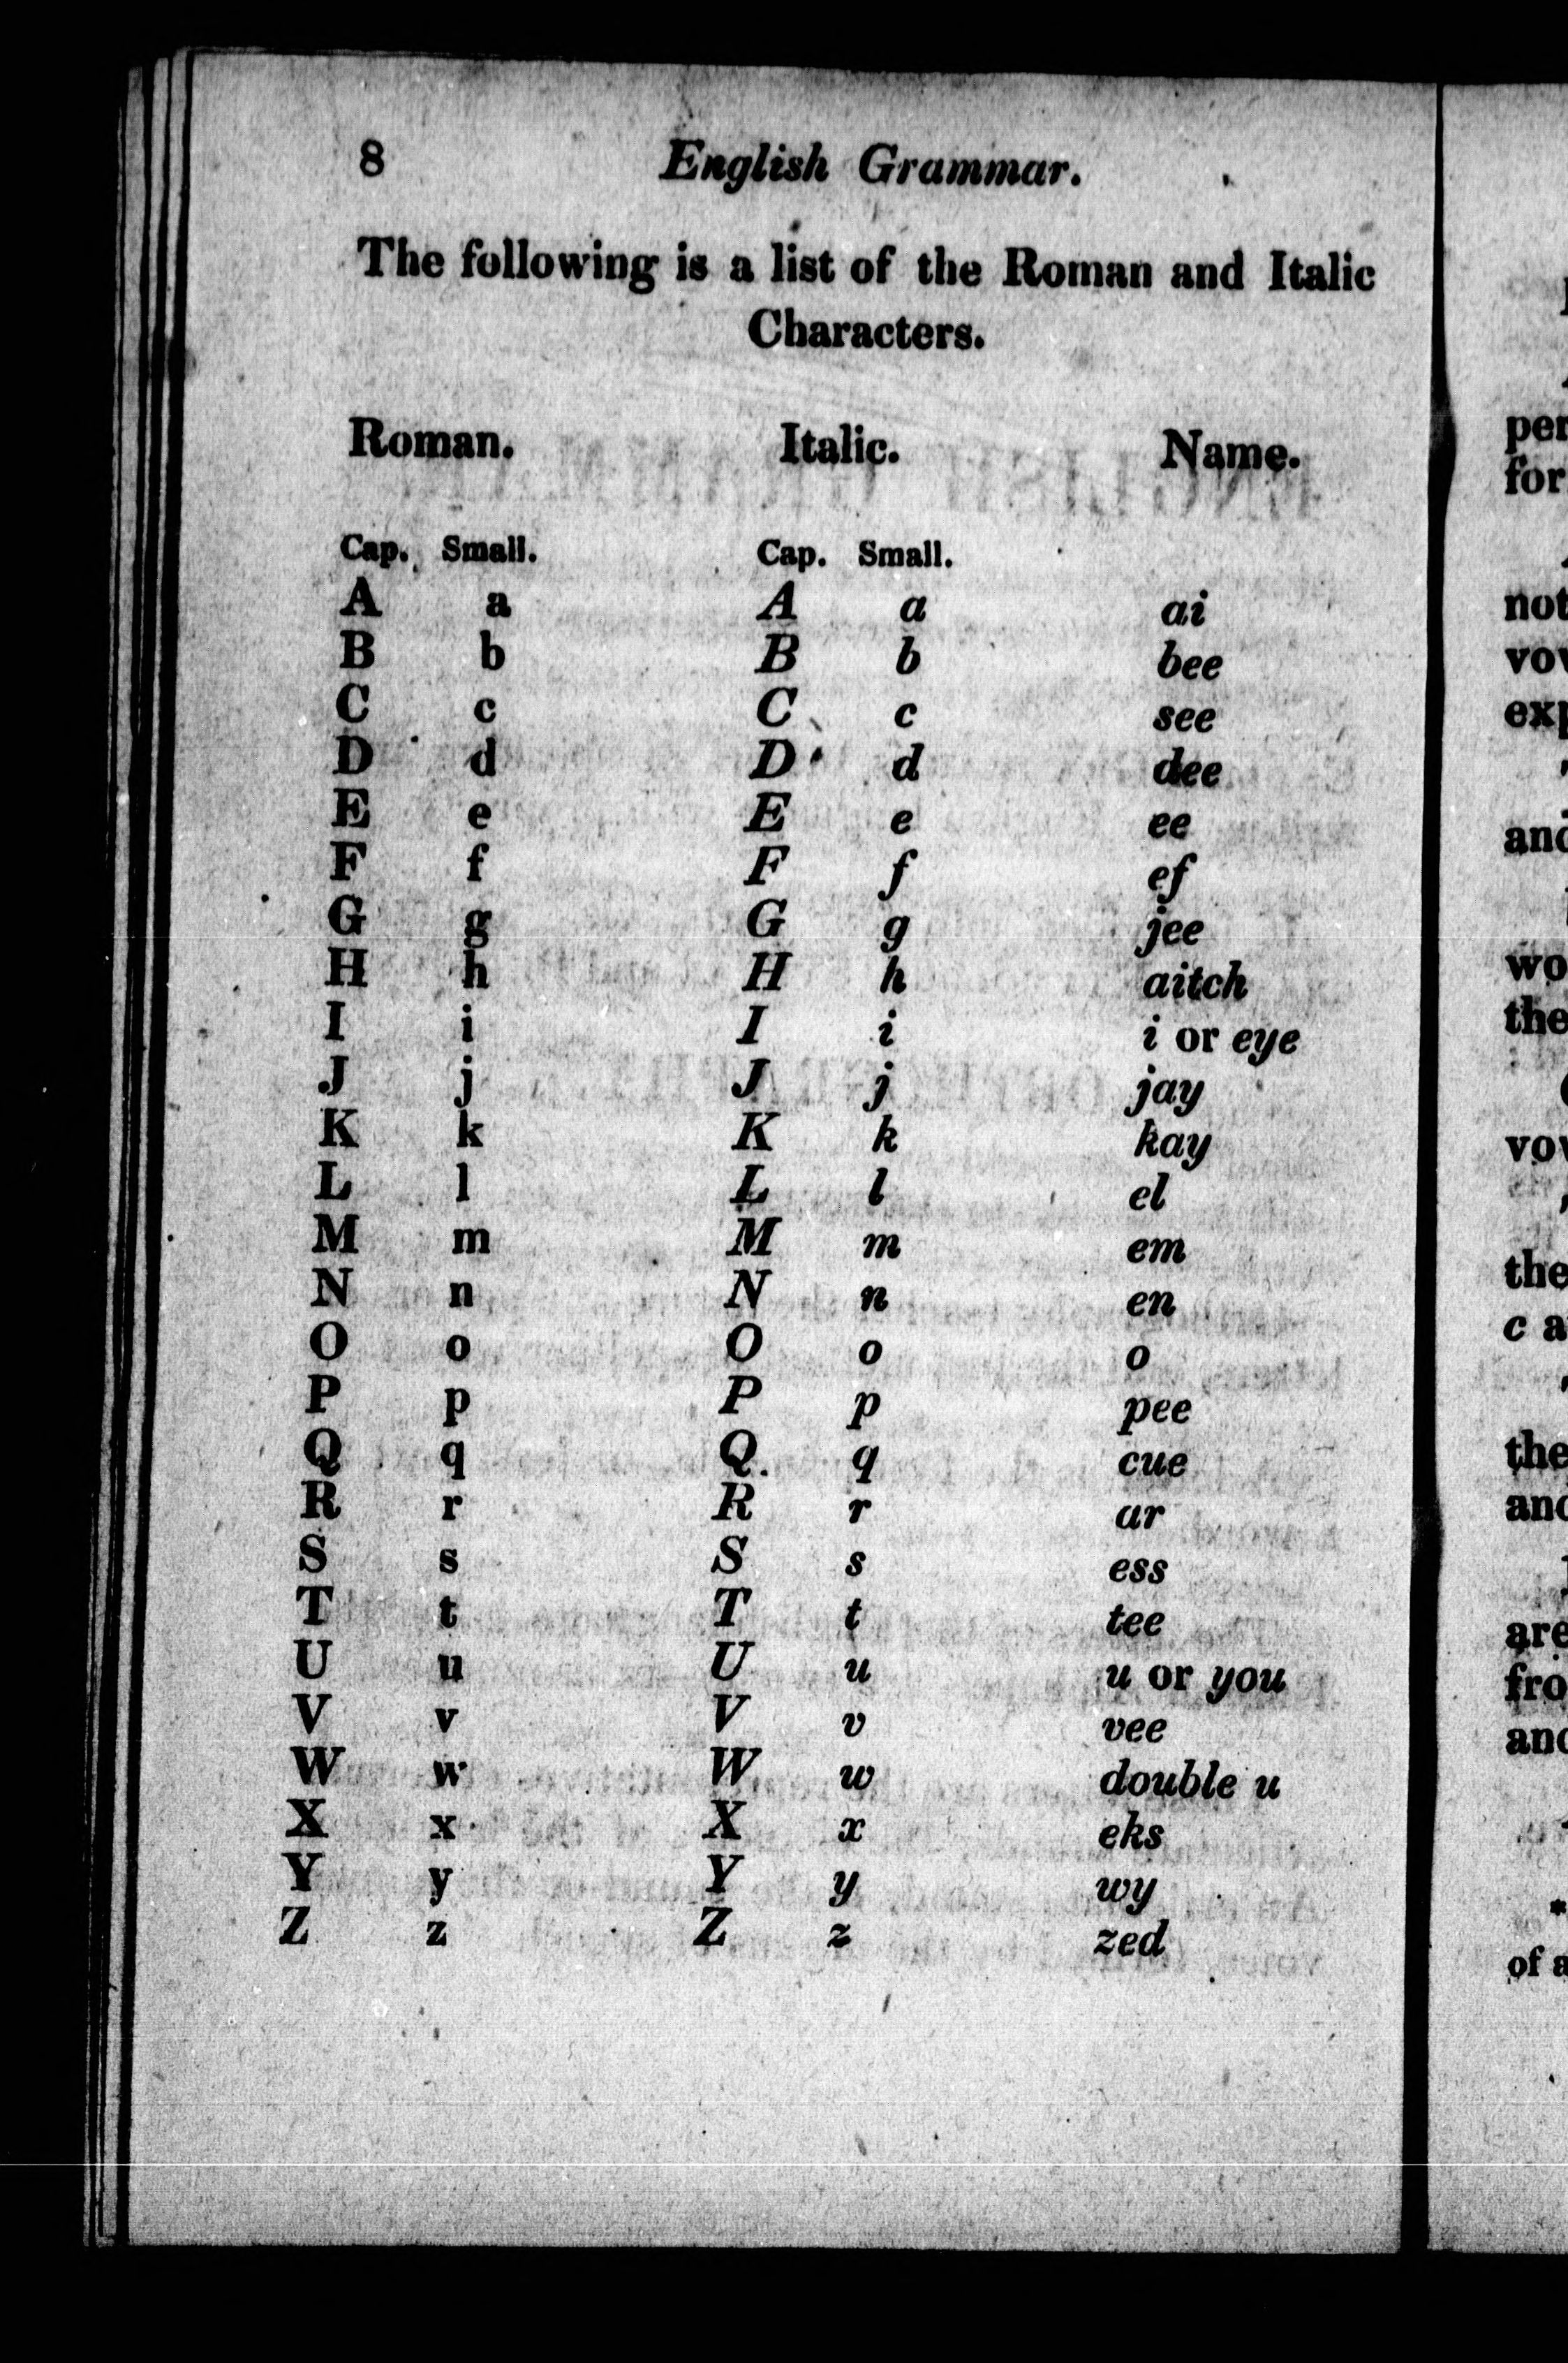 8 English Grammar.
The following is a list of the Roman and Italic
Characters.
Roman. Italic. Name.
Cap. Small. Cap. Small.
A a A a ai
B b B b bee
C c C c see
D d D d dee
E e E e ee
F f F f ef
G g G g jee
H h H h aitch
I i I i i or eye
J j J j jay
K k K k kay
L l L l el
M m M m em
N n N n en
O o O o o
P p P p pee
Q q Q. q cue
R r R r ar
S s S s ess
T t T t tee
U u U u u or you
V v V v vee
W w W w double u
X x X x eks
Y y Y y wy
Z z Z z zed
for
not
the
the
c a
the
are
of a